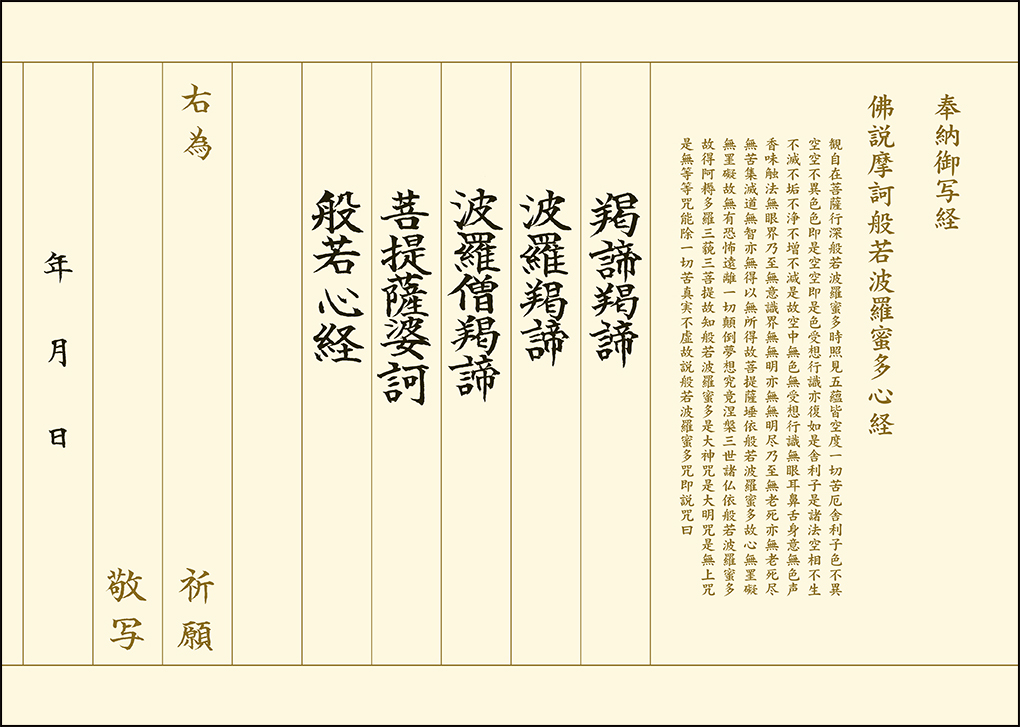 奉納御写経
佛説摩訶般若波羅蜜多心経
観自在菩薩行深般若波羅蜜多時照見五蘊皆空度一切苦厄舎利子色不異
空空不異色色即是空空即是色受想行識亦復如是舎利子是諸法空相不生
不滅不垢不浄不増不減是故空中無色無受想行識無眼耳鼻舌身意無色声
香味触法無眼界乃至無意識界無無明亦無無明尽乃至無老死亦無老死尽
無苦集滅道無智亦無得以無所得故菩提薩埵依般若波羅蜜多故心無罣礙
無罣礙故無有恐怖遠離一切顛倒夢想究竟涅槃三世諸仏依般若波羅蜜多
故得阿耨多羅三藐三菩提故知般若波羅蜜多是大神咒是大明咒是無上咒
是無等等咒能除一切苦真実不虚故説般若波羅蜜多咒即説咒曰
羯諦羯諦
波羅羯諦
波羅僧羯諦
菩提薩婆訶
般若心経
右為 祈願
敬写
年 月 日